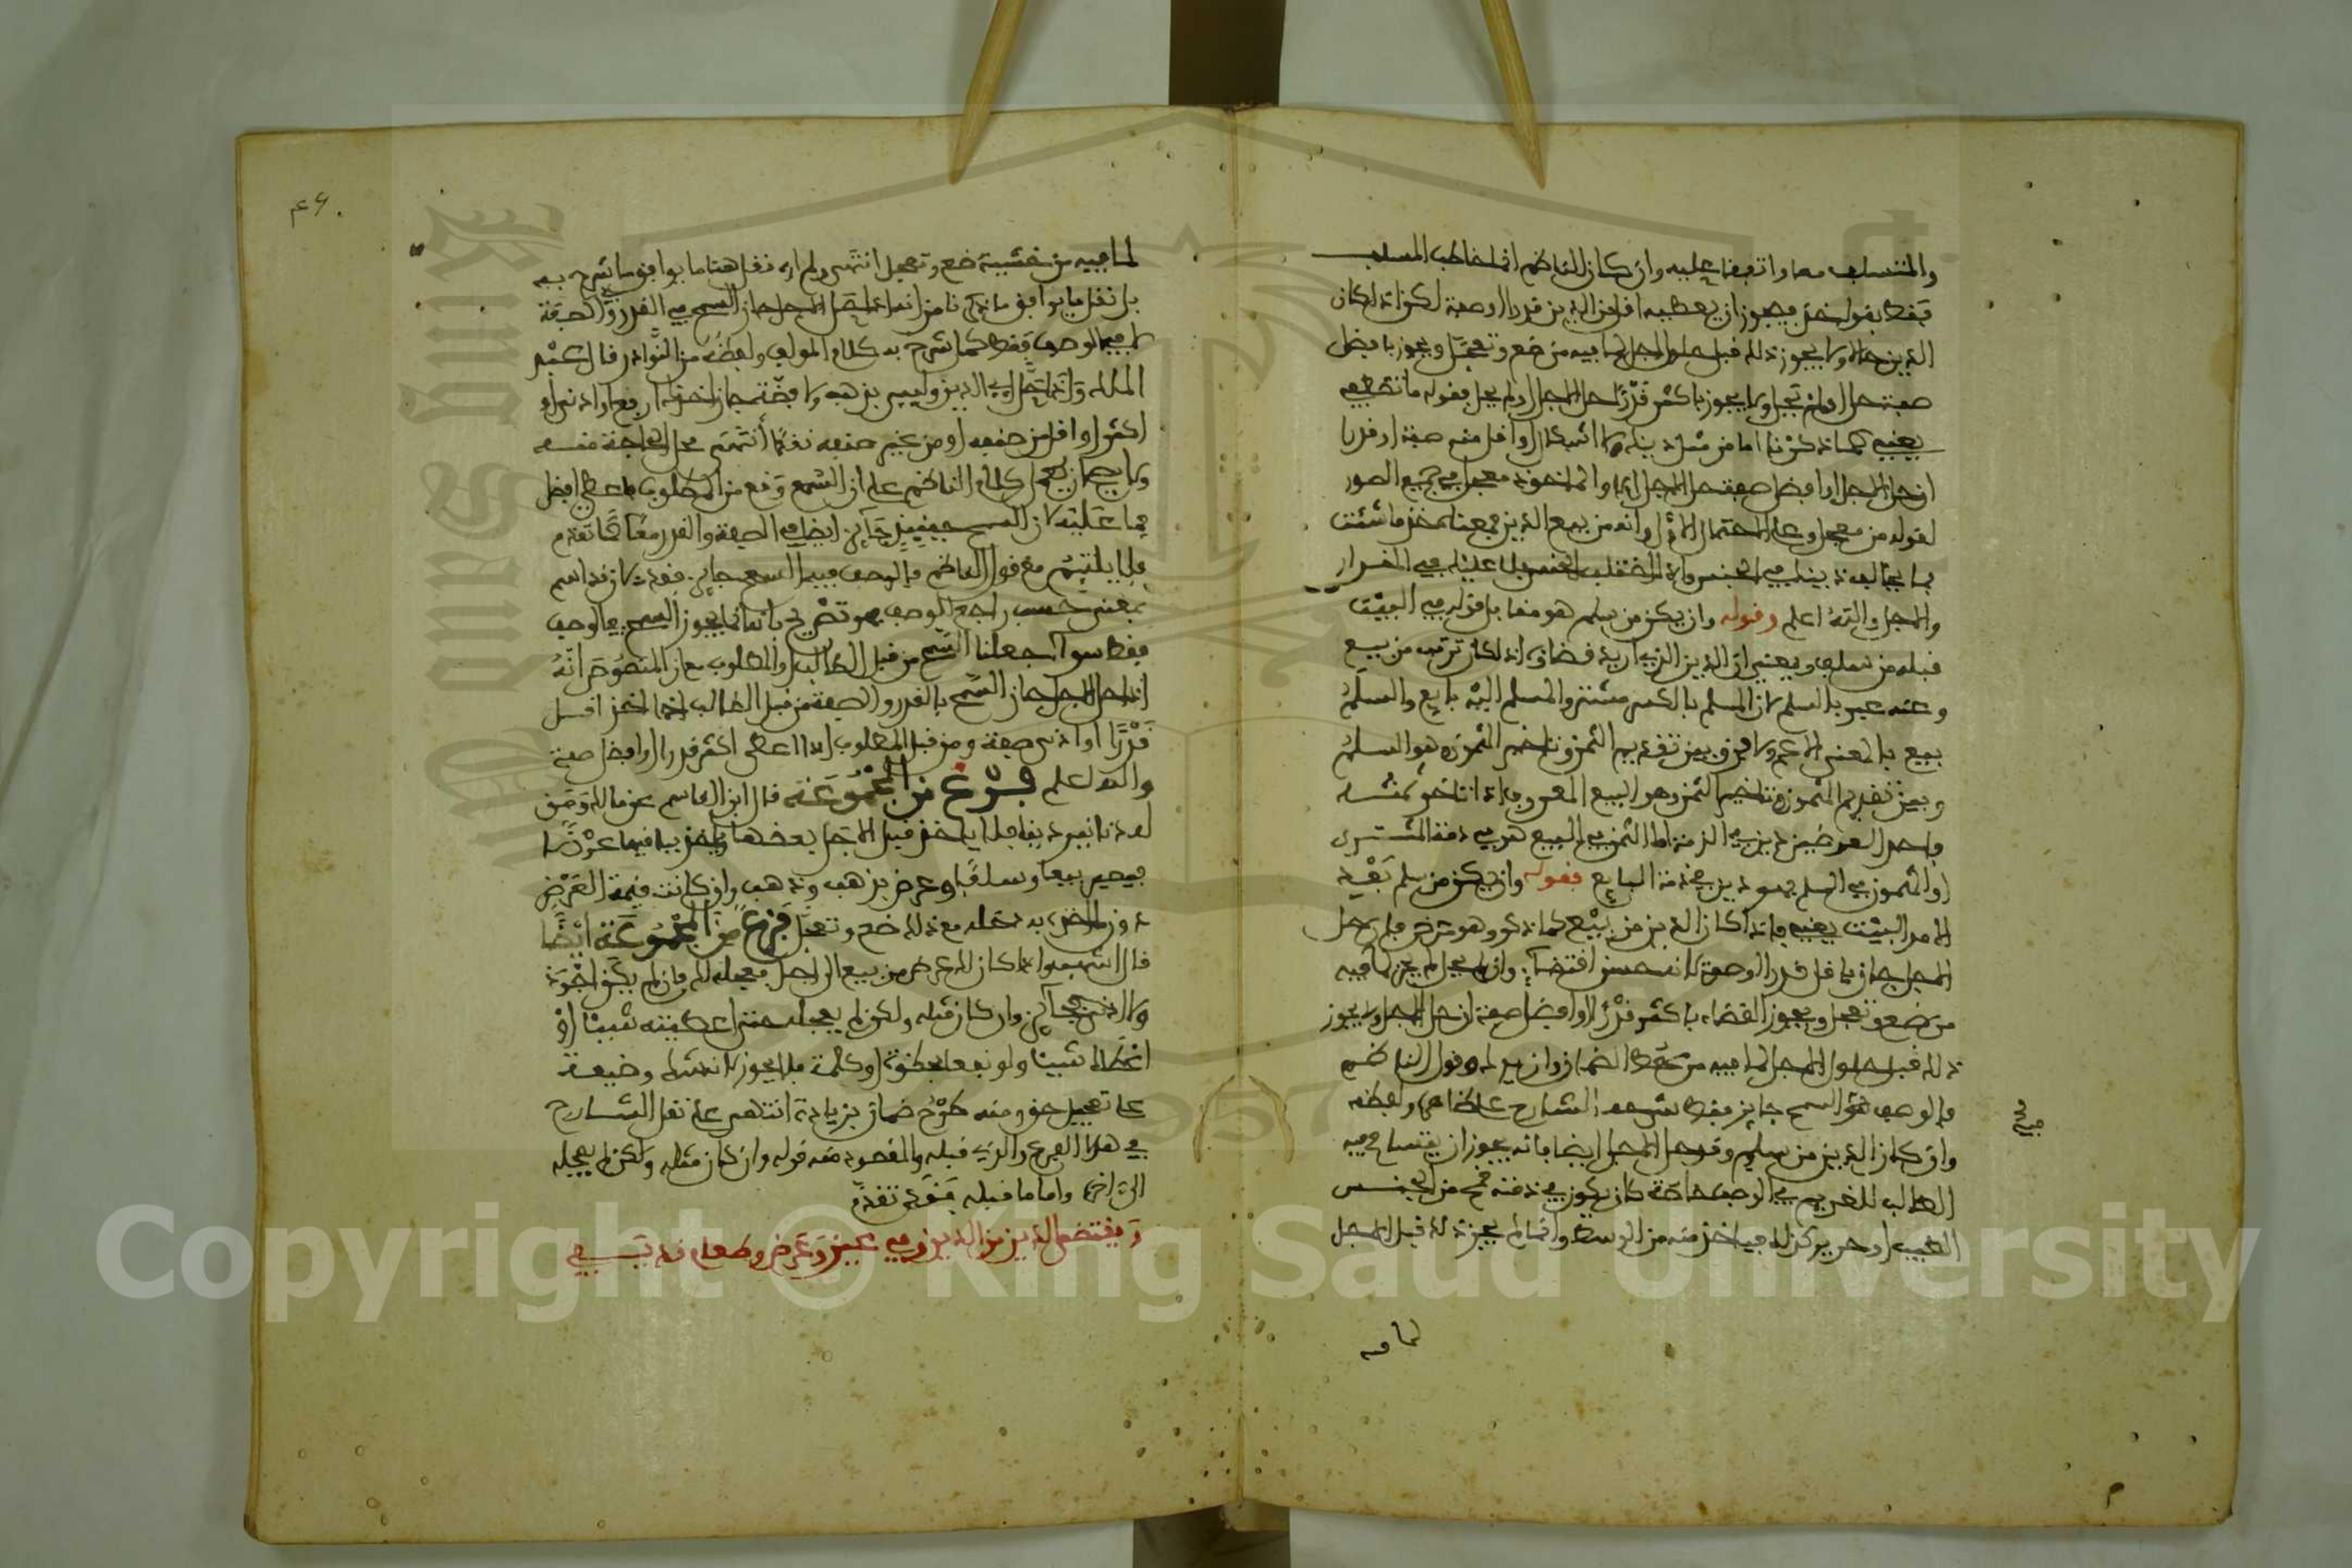 والمتسلف معا واتفقا عليه وان كان الناظم انما خاطب المسلف
فقط بقوله خذ فيجوز ان يعطيه اقل من الدين قدرا او صفة لكن اذا كان
الدين حالا ولا يجوز ذلك قبل حلول الاجل لما فيه من ضع وتعجل ويجوز بافضل
صفة حل او لم يحل ولا يجوز باكثر قدرا حل الاجل او لم يحل فقوله ما تقتضيه
يعني كما ذكرنا اما من مثل دينك ولا اشكال او اقل منه صفة او قدرا
ان حل الاجل او افضل صفة حل الاجل ام لا والماخوذ معجل في جميع الصور
لقوله من معجل وعلى الاحتمال الاول وانه من بيع الدين فمعناه خذ ما شئت
مما يخالف دينك في الجنس
والاجل والله اعلم وقوله وان يكن من سلم هو مقابل قوله في البيت
قبله من سلف ويعني ان الدين الذي اريد قضاؤه اذا كان ترتب من بيع
وعنه عبر بالسلم لان المسلم بالكسر مشتر والمسلم اليه بايع والسلم
بيع بالمعنى الاعم ولا فرق بين تقديم الثمن وتاخير المثمون وهو السلم
وبين تقديم المثمون وتاخير الثمن وهو البيع المعروف اذا تاخر ثمنه
واحد العوضين دين في الذمة اما الثمن في البيع فهو في ذمة المشتري
او المثمون في السلم فهو دين في ذمة البايع فقوله وان يكن من سلم بعيد
الامد البيت يعني فاذا كان الدين من بيع كما ذكر وهو عرض فان حل
الاجل جاز باقل قدرا او صفة لانه حسن اقتضاء وان لم يحل لم يجز لما فيه
من ضع وتعجل ويجوز القضاء باكثر قدرا او افضل صفة ان حل الاجل ولا يجوز
ذلك قبل حلول الاجل لما فيه من حط الضمان وازيدك وقول الناظم
فالوصف فيه السمح جايز فقط شرحه الشارح على ظاهره ولفظه
وان كان الدين من سلم وقد حل الاجل ايضا فانه يجوز ان يتسامح فيه
الطالب للغريم في الوصف خاصة كان يكون في ذمته قمح من الجنس
الطيب او حرير كذلك فياخذ منه من الوسط وانما لم يجز ذلك قبل الاجل
فيه
لما فيه
٤٦
لما فيه من خشية ضع وتعجل انتهى ولم اره نقل هنا ما يوافق ما شرح به
بل نقل ما يوافق ما ذكرنا من انه اذا حل الاجل جاز السمح في القدر والصفة
لا في الوصف فقط كما شرح به كلام المولف ولفظه من النوادر قال عبد
الملك واذا حل اجل الدين وليس بذهب ولا فضة جاز اخذك ارفع او ادنى او
اكثر او اقل من صنفه او من غير صنفه نقدا انتهى محل الحاجة منه
ولا يصح ان يحمل كلام الناظم على ان السمح وقع من المطلوب فاعطى افضل
مما عليه لان السمح حينئذ جائز ايضا في الصفة والقدر معا كما تقدم
فلا يلتئم مع قول الناظم فالوصف فيه السمح جائز فقط لان قط اسم
بمعنى حسب راجع للوصف فهو تصريح بانه انما يجوز السمح في الوصف
فقط سواء جعلنا السمح من قبل الطالب او المطلوب مع ان المنصوص انه
اذا حل الاجل جاز السمح بالقدر والصفة من قبل الطالب اذا اخذ اقل
قدرا او ادنى صفة ومن قبل المطلوب اذا اعطى اكثر قدرا او افضل صفة
والله اعلم فرع من المجموعة قال ابن القاسم عن مالك ومن
له دنانير دينا فلا ياخذ قبل الاجل بعضها وياخذ بباقيها عرضا
فيصير بيعا وسلفا وعرض بذهب وذهب وان كانت قيمة العرض
دون الدين به دخله مع ذلك ضع وتعجل فرع من المجموعة ايضا
قال اشهب اذا كان لك عرض من بيع الى اجل فعجله لك فان لم يكن اجود
ولا ادنى فجائز وان كان مثله ولكن لم يعجله حتى اعطيته شيئا او
اعطاك شيئا ولو نفعا بخطوة او كلمة فلا يجوز لانه شبه وضيعة
على تعجيل حق ومنه طرح ضمان بزيادة انتهى على نقل الشارح
في هذا الفرع والذي قبله والمقصود منه قوله وان كان مثله ولكن لم يعجله
الى اخره واما ما قبله فقد تقدم
ويقتضى الدين من الدين وفي عين وعرض وطعام قد يفي